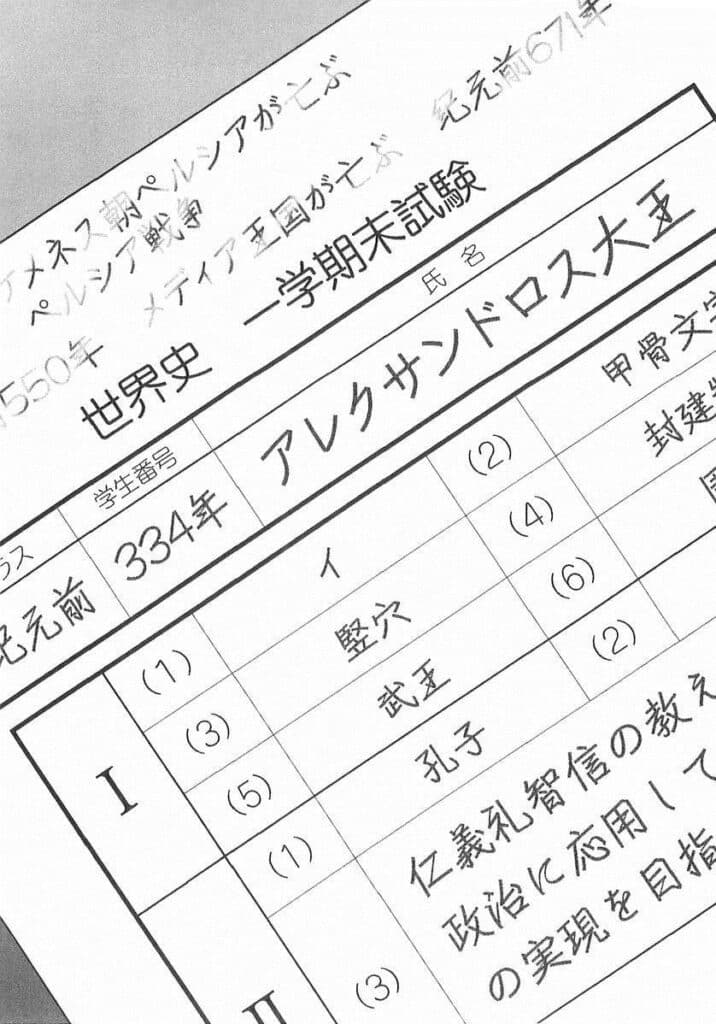 紀元前671年
アケメネス朝ペルシアが亡ぶ
ペルシア戦争
メディア王国が亡ぶ
550年
世界史 一学期末試験
学生番号 氏名
紀元前 334年 アレクサンドロス大王
I
(1) イ (2) 甲骨文字
(3) 竪穴 (4) 封建
(5) 武王 (6)
II
(1) 孔子 (2)
(3) 仁義礼智信の教え
政治に応用して
の実現を目指